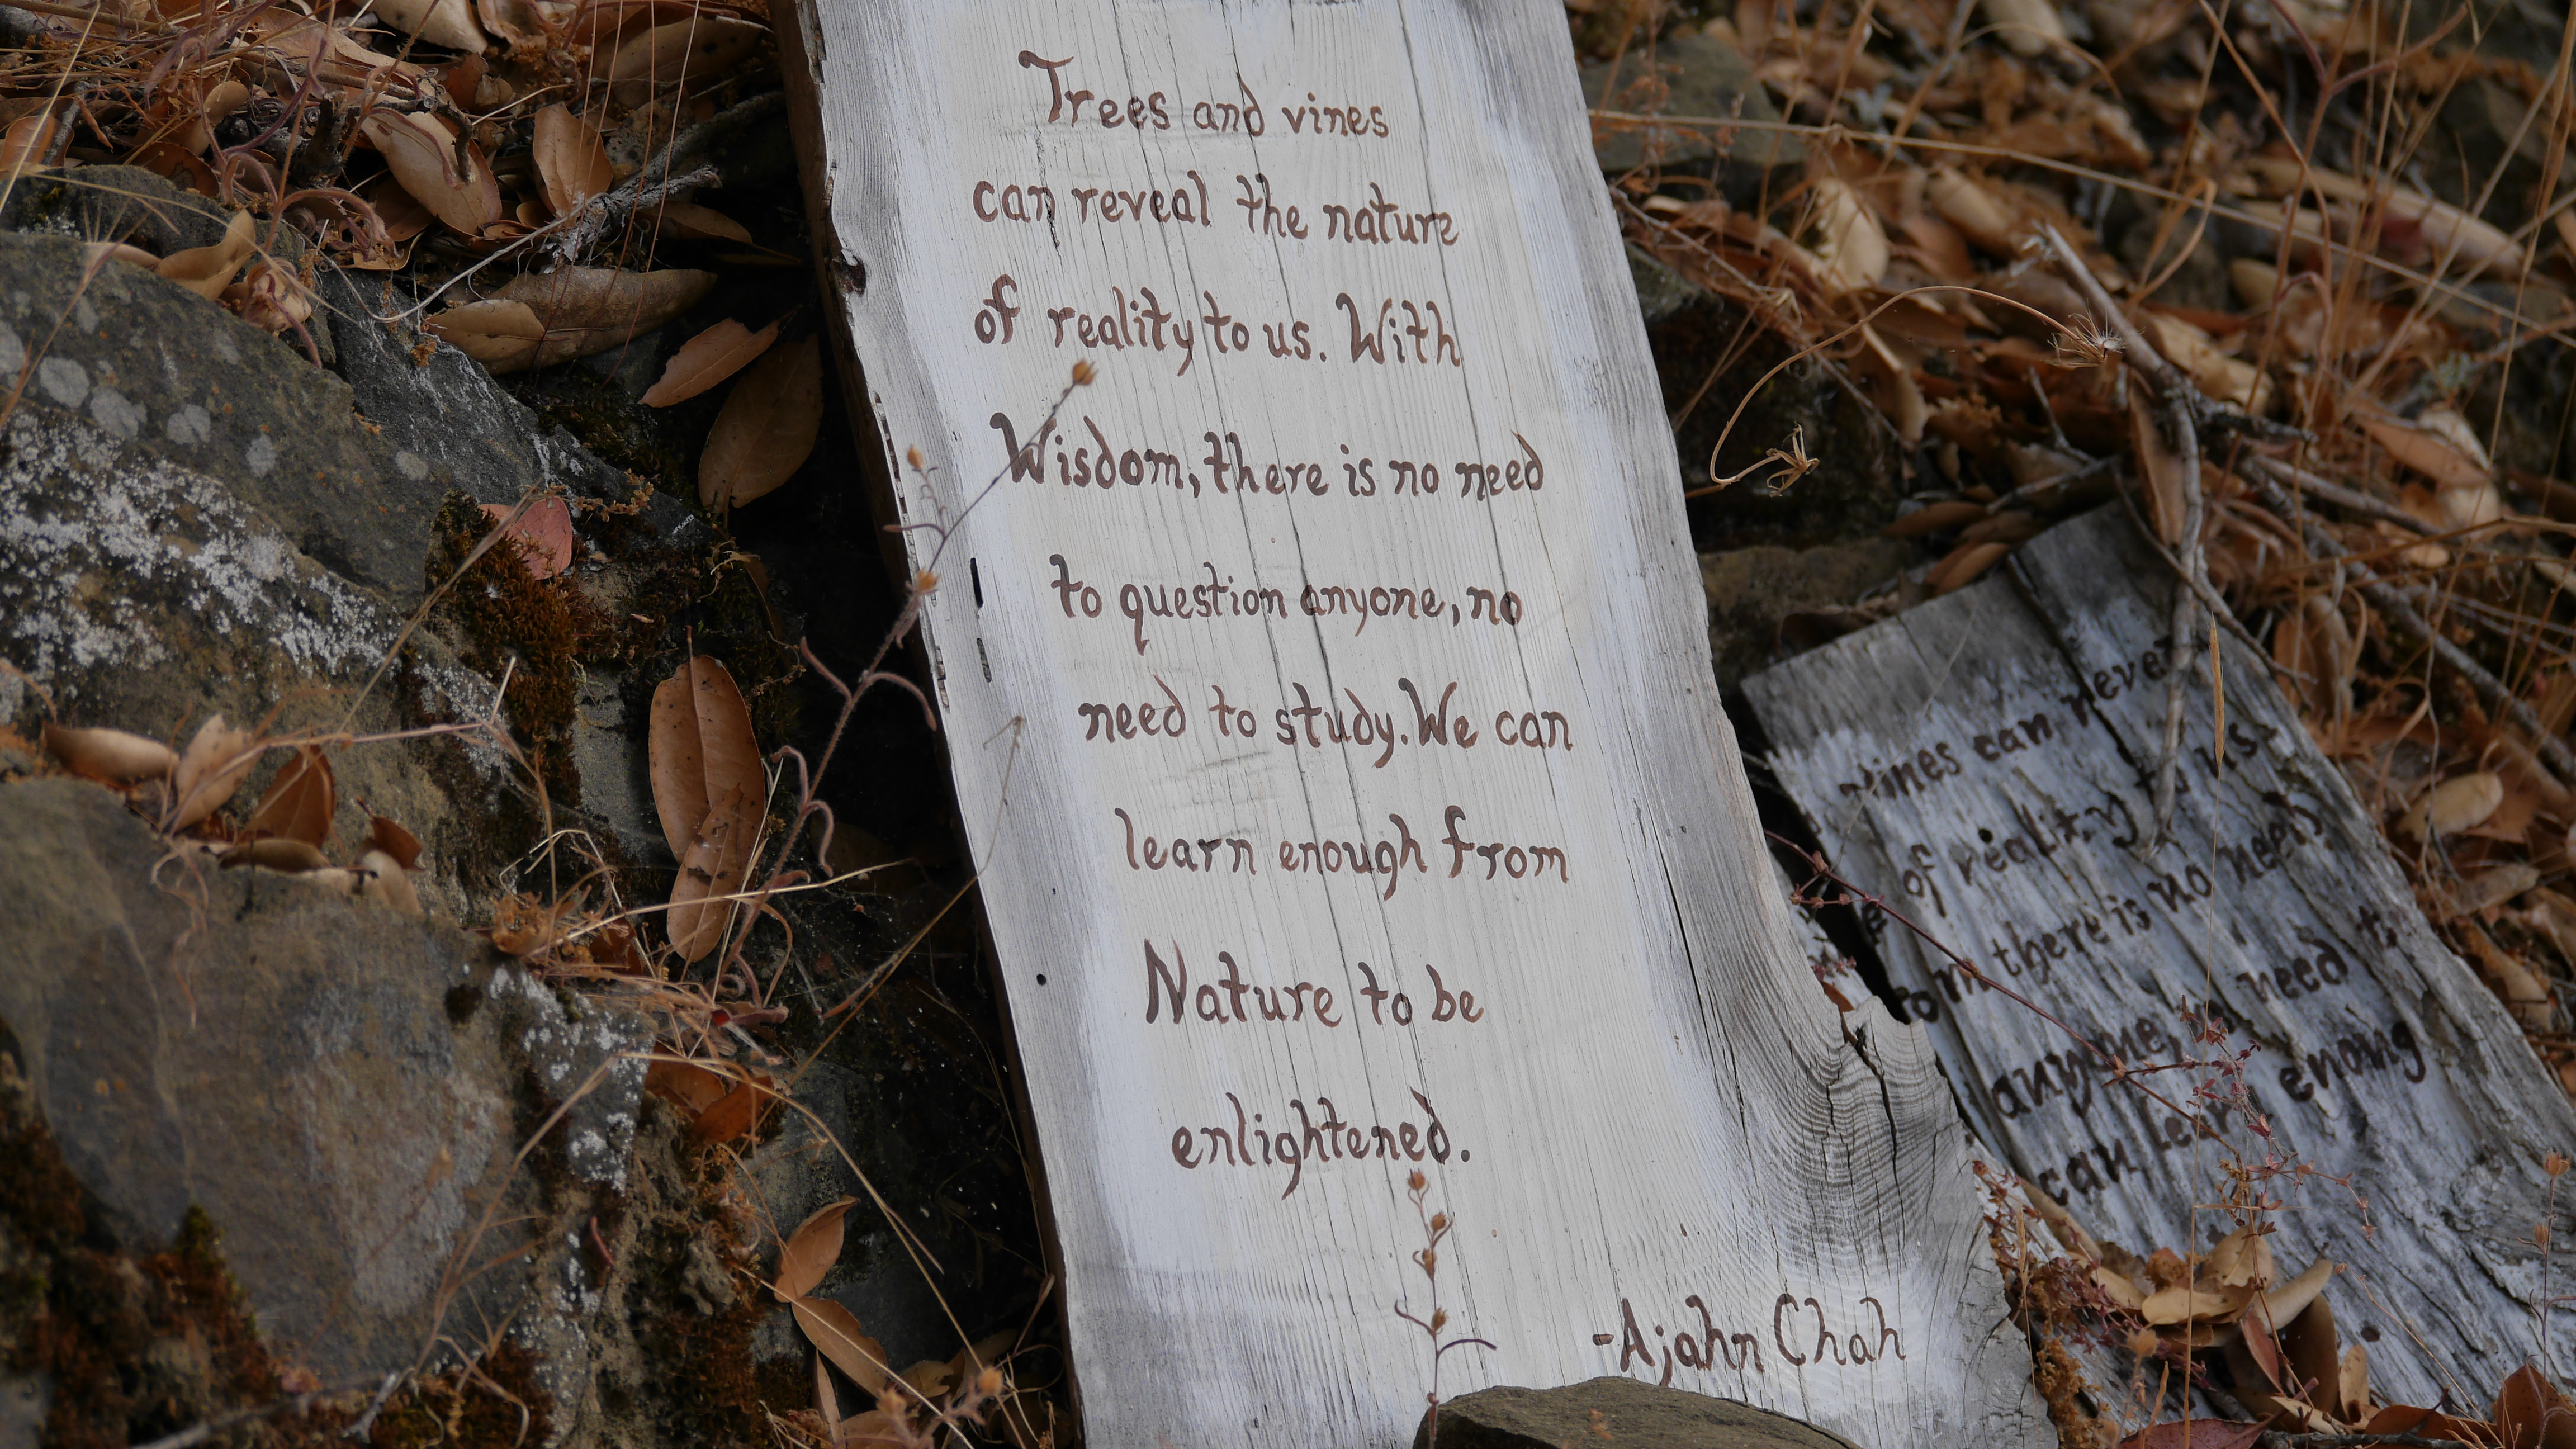 Trees and vines
can reveal the nature
of reality to us. With
Wisdom, there is no need
to question anyone, no
need to study. We can
learn enough from
Nature to be
enlightened.
-Ajahn Chah
vines can reveal
of reality to us.
there is no need
anyone, need t
can learn enoug